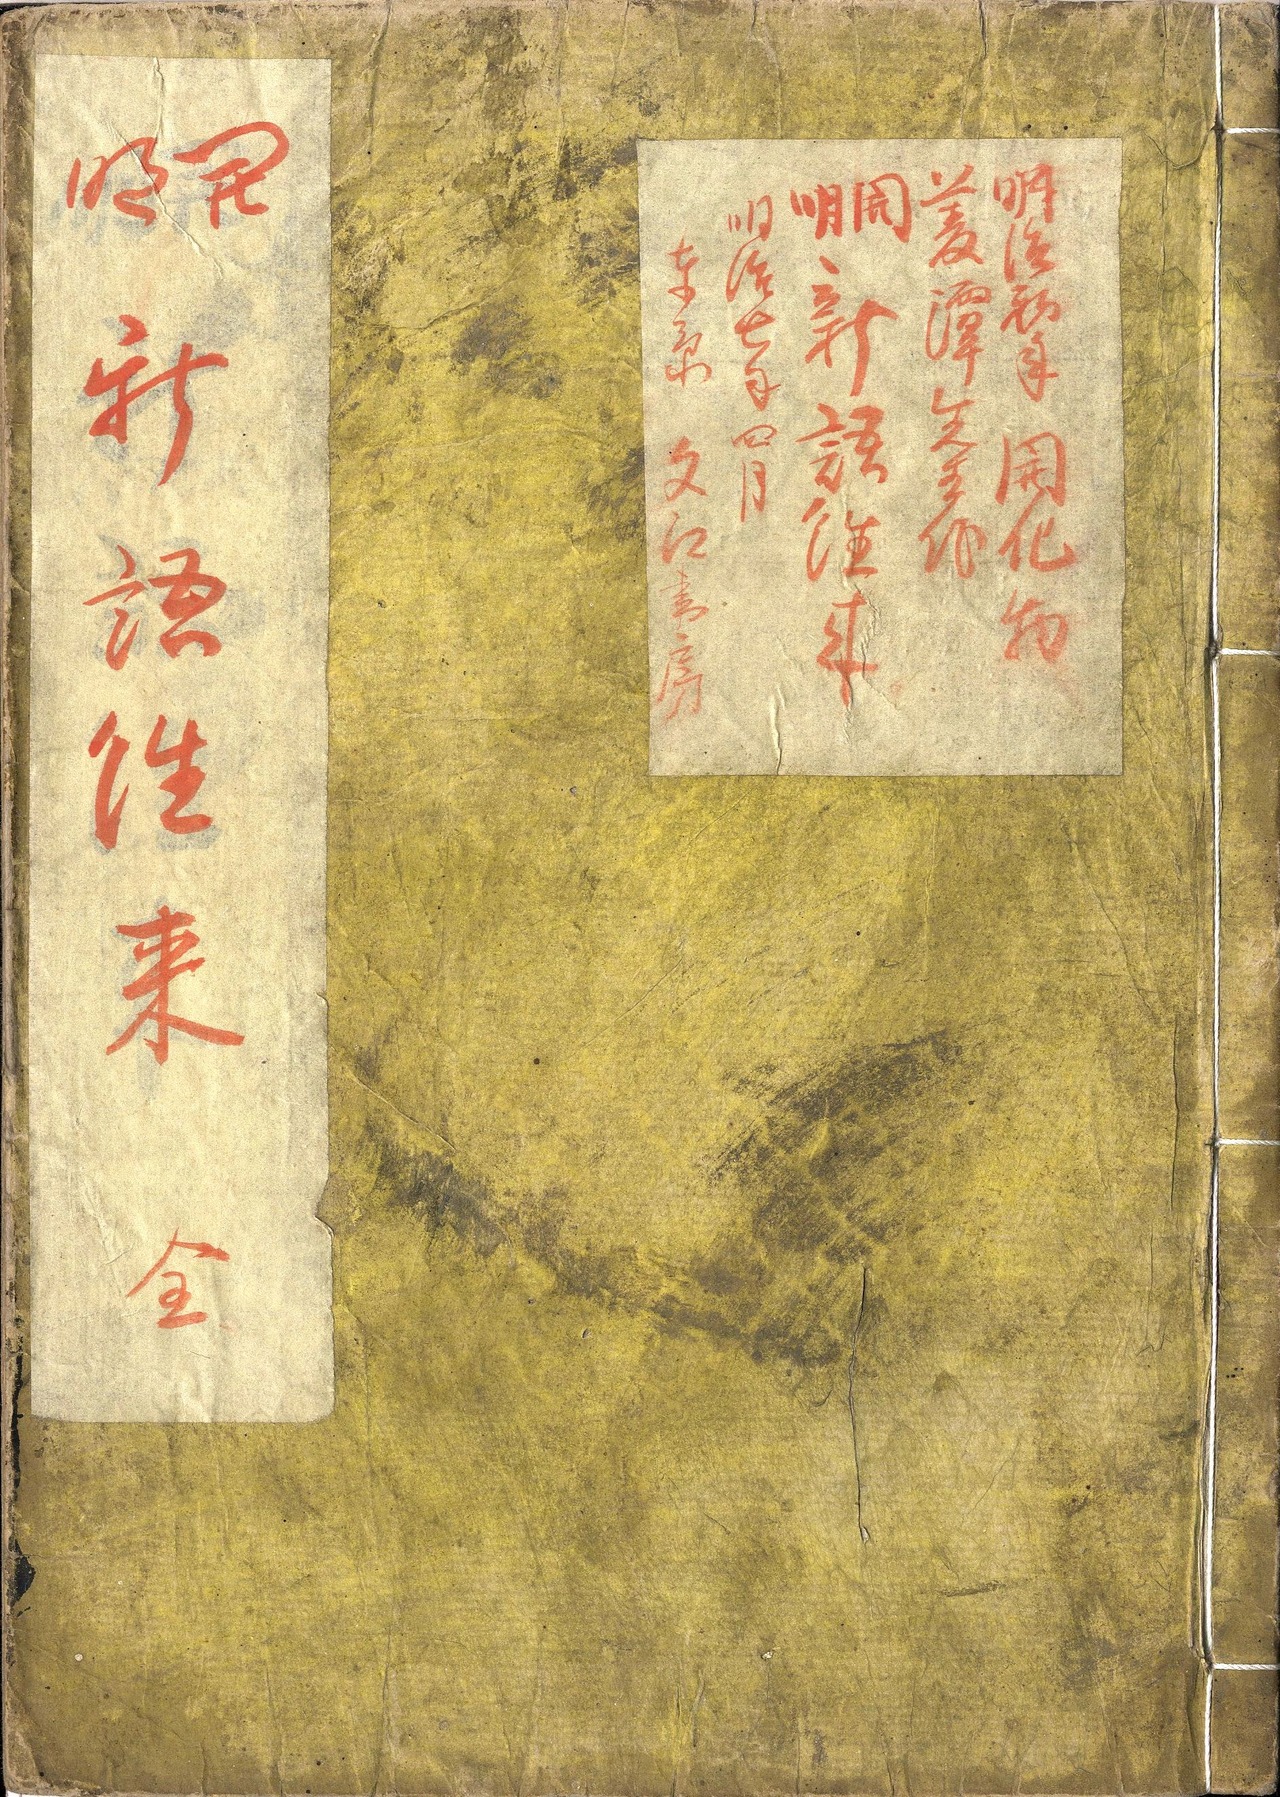 明治初年 開化物
菱潭先生作
開明 新語往来
明治七年四月
東京 文江書房
開明 新語往来 全